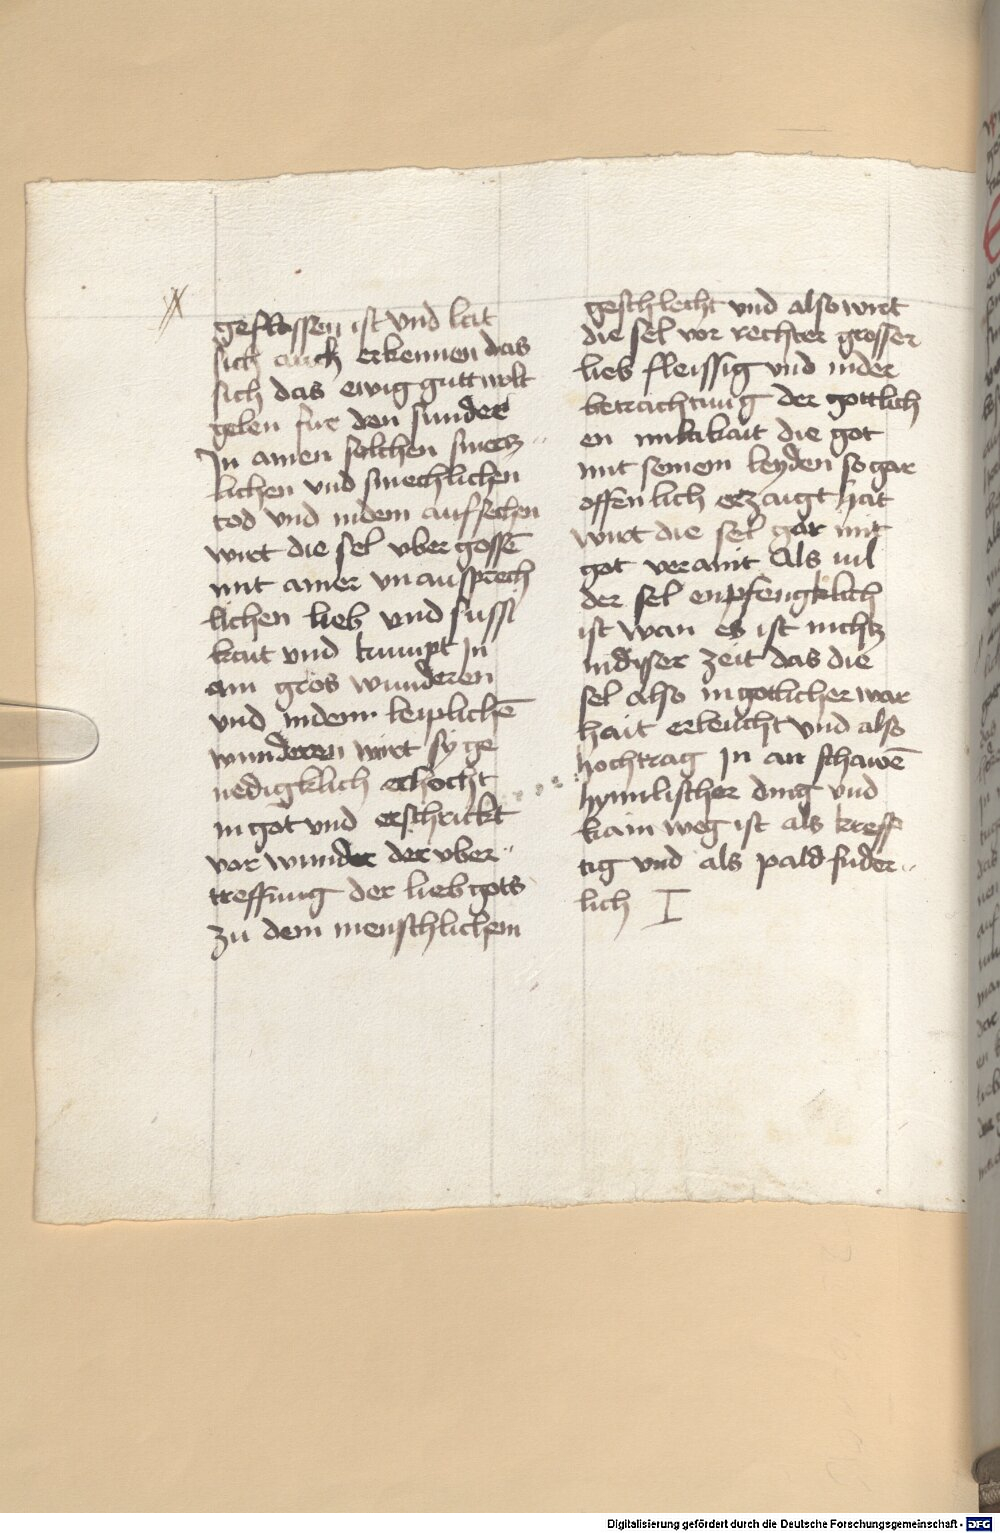 geflossen ist vnd lat
sich auch erkennen das
sich das ewig gutt wolt
geben für den sunder
In amen solchen smertz
lichen vnd smechlichen
tod vnd indem auffsechen
wirt die sel vber gossē
mit amer vnausprech
lichen lieb vnd sussi
kait vnd kumpt In
ain gros wunderen
vnd indem leiplichē
wunderen wirt sy ge
nedigklich erhocht
in got vnd erschrickt
vor wunder der vber
treffung der lieb gots
zu dem menschlichem
geschlecht vnd also wirt
die sel vor rechter grosser
lieb fleissig vnd inder
betrachtung der gottlich
en miltikait die got
mit seinem leyden so gar
offenlich erzaigt hat
wirt die sel gar mit
got veraint Als uil
der sel enpfengklich
ist wan es ist nichtz
indiser zeit das die
sel also in gotlicher war
hait erleucht vnd also
hochtrag In an schawē
hymlischer ding vnd
kain weg ist als kreff
tig vnd als pald fuder
lich
Digitalisierung gefördert durch die Deutsche Forschungsgemeinschaft - DFG